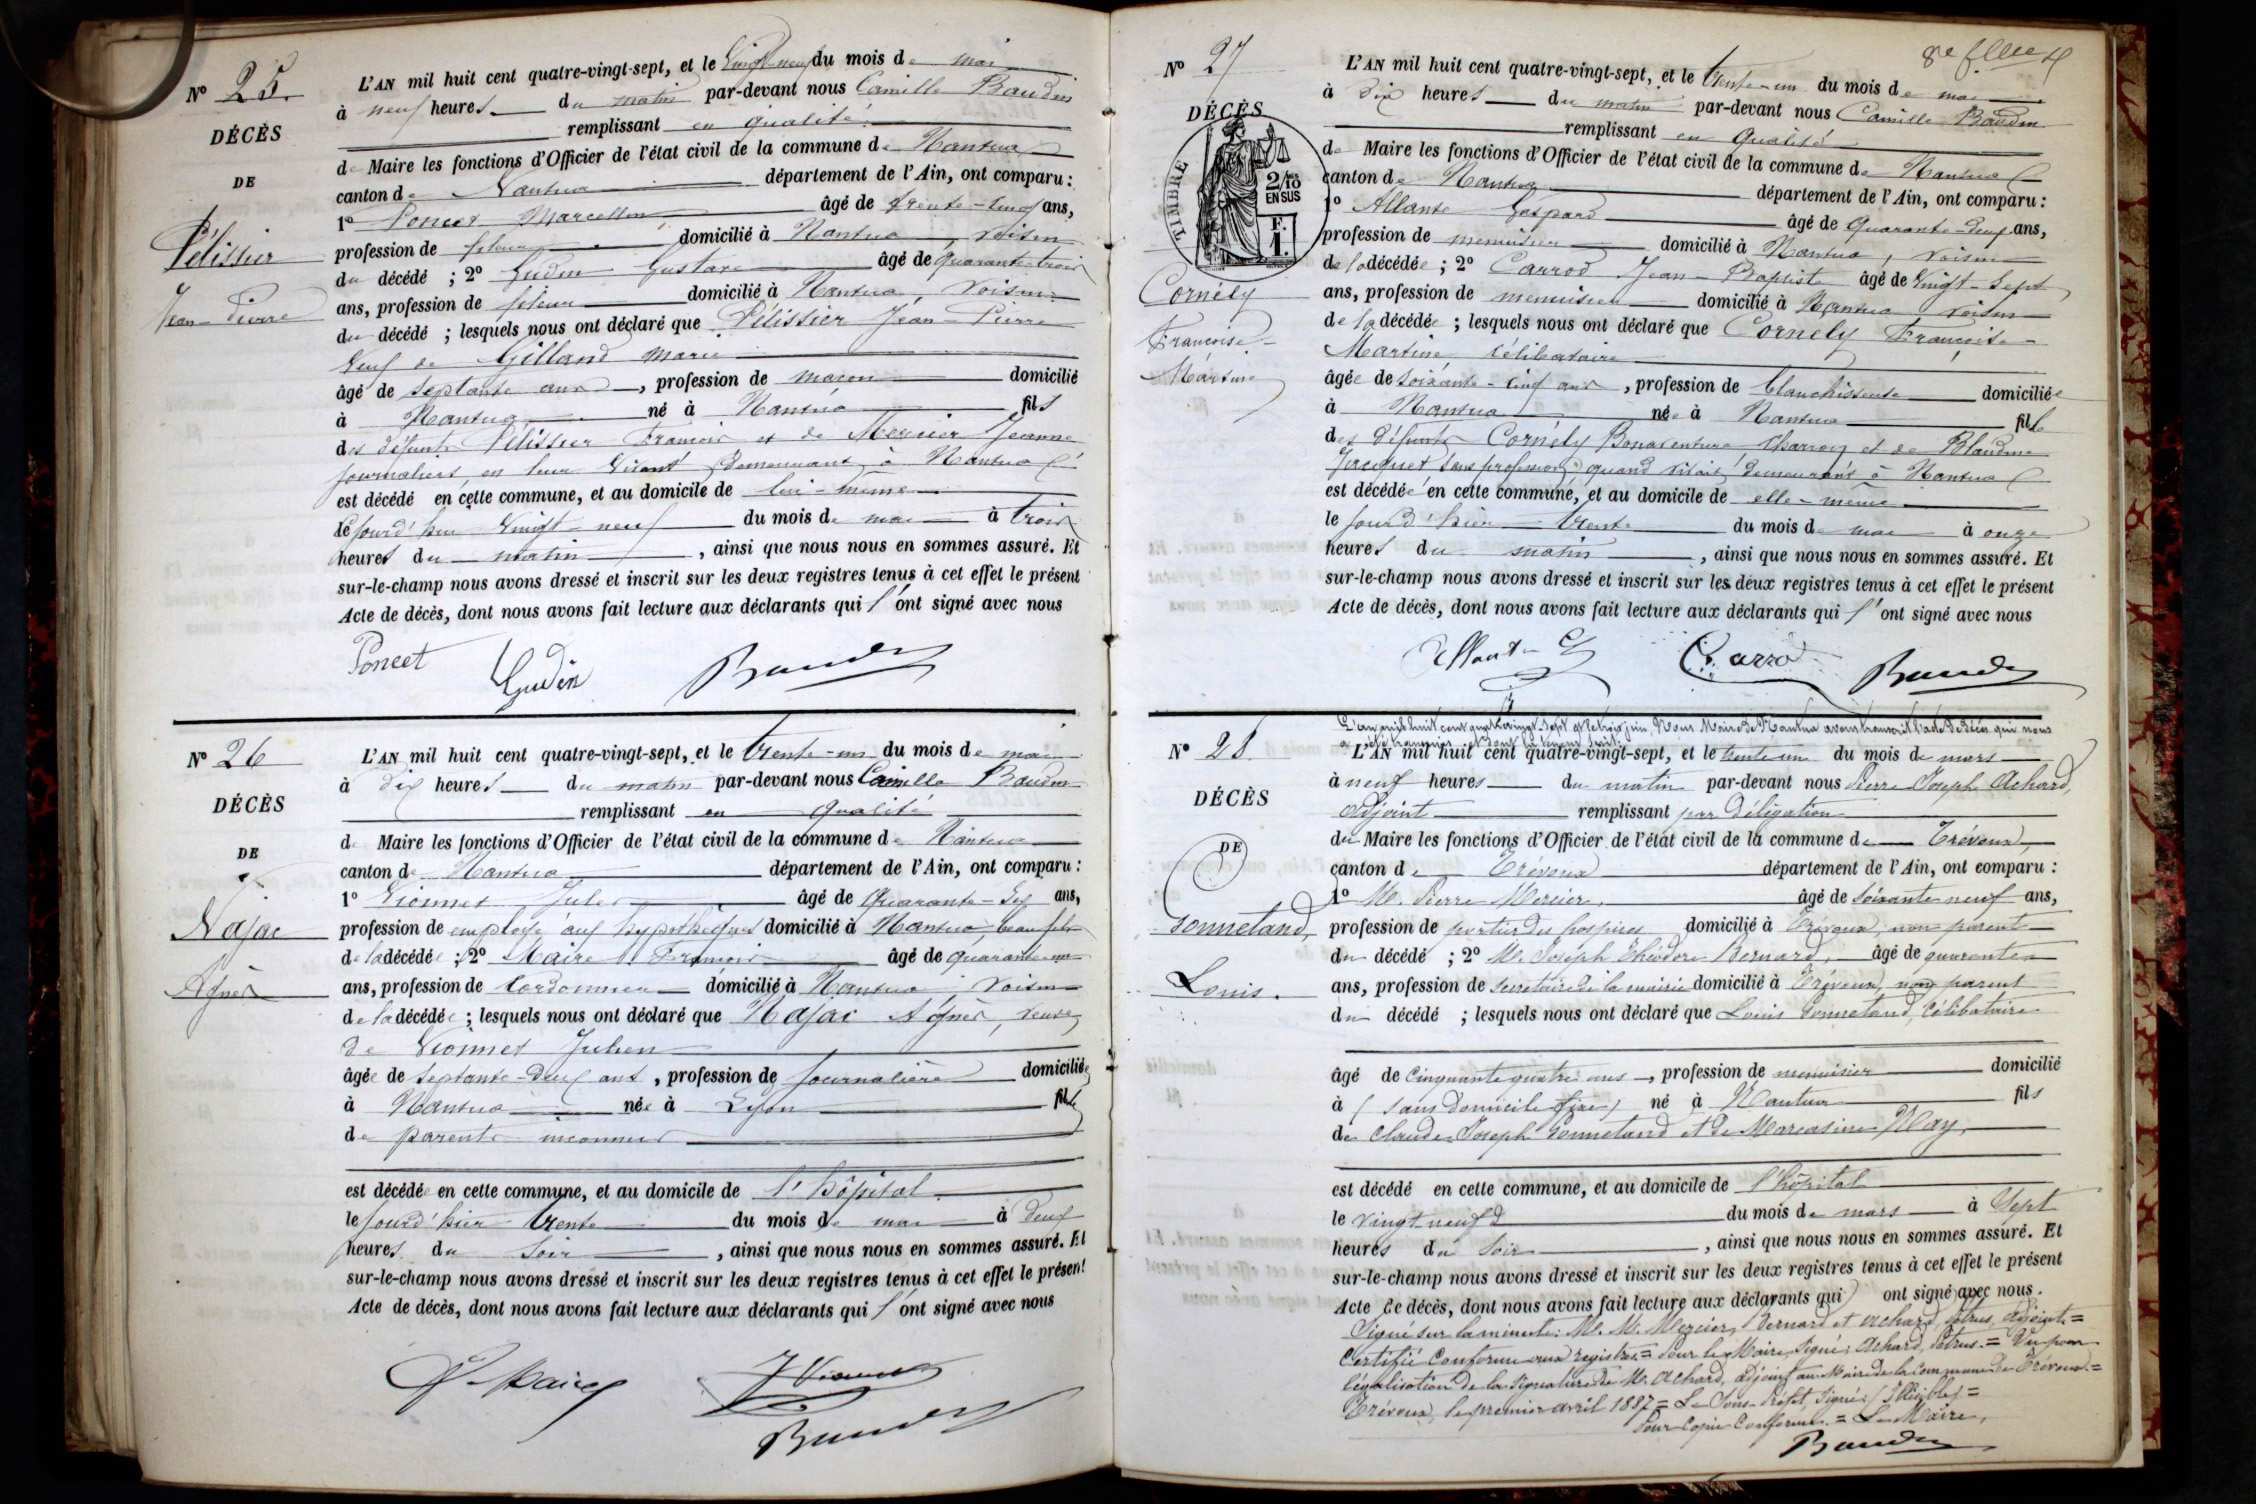 Nº 25.
DÉCÈS
DE
Pélissier
Jean-Pierre
L'AN mil huit cent quatre-vingt-sept, et le Vingt-neuf du mois de mai
à neuf heures du matin par-devant nous Camille Baudin
remplissant en qualité
de Maire les fonctions d'Officier de l'état civil de la commune de Nantua
canton de Nantua département de l'Ain, ont comparu :
1º Poncet Marcellin âgé de trente-cinq ans,
profession de fileur domicilié à Nantua voisin
du décédé ; 2º Gudin Gustave âgé de quarante-trois
ans, profession de fileur domicilié à Nantua voisin
du décédé ; lesquels nous ont déclaré que Pélissier Jean-Pierre
Veuf de Gilland Marie
âgé de septante ans, profession de maçon domicilié
à Nantua né à Nantua fils
des défunts Pélissier François et de Mercier Jeanne
journaliers en leur vivant demeurant à Nantua
est décédé en cette commune, et au domicile de lui-même
le jourd'hui Vingt-neuf du mois de mai à trois
heures du matin, ainsi que nous nous en sommes assuré. Et
sur-le-champ nous avons dressé et inscrit sur les deux registres tenus à cet effet le présent
Acte de décès, dont nous avons fait lecture aux déclarants qui l'ont signé avec nous
Poncet Gudin Baudin
Nº 26
DÉCÈS
DE
Najac
Agnès
L'AN mil huit cent quatre-vingt-sept, et le trente-un du mois de mai
à dix heures du matin par-devant nous Camille Baudin
remplissant en qualité
de Maire les fonctions d'Officier de l'état civil de la commune de Nantua
canton de Nantua département de l'Ain, ont comparu :
1º Vionnet Jules âgé de Quarante-six ans,
profession de employé aux hypothèques domicilié à Nantua, beau fils
de la décédée ; 2º Maire François âgé de quarante-un
ans, profession de cordonnier domicilié à Nantua voisin
de la décédée ; lesquels nous ont déclaré que Najac Agnès, veuve
de Vionnet Julien
âgée de septante-deux ans, profession de journalière domiciliée
à Nantua née à Lyon fille
de parents inconnus
est décédée en cette commune, et au domicile de l'hôpital
le jourd'hier trente du mois de mai à deux
heures du soir, ainsi que nous nous en sommes assuré. Et
sur-le-champ nous avons dressé et inscrit sur les deux registres tenus à cet effet le présent
Acte de décès, dont nous avons fait lecture aux déclarants qui l'ont signé avec nous
F. Maire J Vionnet
Baudin
8e
Nº 27
DÉCÈS
TIMBRE
2/10
EN SUS
F.
1.
Cornély
Françoise-
Martine
L'AN mil huit cent quatre-vingt-sept, et le trente-un du mois de mai
à dix heures du matin par-devant nous Camille Baudin
remplissant en qualité
de Maire les fonctions d'Officier de l'état civil de la commune de Nantua
canton de Nantua département de l'Ain, ont comparu :
1º Allante Gaspard âgé de Quarante-deux ans,
profession de menuisier domicilié à Nantua, voisin
de la décédée ; 2º Carrod Jean-Baptiste âgé de vingt-sept
ans, profession de menuisier domicilié à Nantua voisin
de la décédée ; lesquels nous ont déclaré que Cornély Françoise-
Martine célibataire
âgée de soixante-cinq ans, profession de blanchisseuse domiciliée
à Nantua née à Nantua fille
des défunts Cornély Bonaventure charron et de Blandine
Jacquet sans profession quand vivait demeurant à Nantua
est décédée en cette commune, et au domicile de elle-même
le jourd'hier trente du mois de mai à onze
heures du matin, ainsi que nous nous en sommes assuré. Et
sur-le-champ nous avons dressé et inscrit sur les deux registres tenus à cet effet le présent
Acte de décès, dont nous avons fait lecture aux déclarants qui l'ont signé avec nous
Allante G Carrod Baudin
Nº 28.
DÉCÈS
DE
Sonnetand,
Louis.
L'an mil huit cent quatre vingt-sept et le trois juin, Nous Maire de Nantua avons transcrit l'acte de décès qui nous
a été transmis et dont la teneur suit :
L'AN mil huit cent quatre-vingt-sept, et le trente un du mois de mars
à neuf heures du matin par-devant nous Pierre Joseph Achard,
adjoint remplissant par délégation
du Maire les fonctions d'Officier de l'état civil de la commune de Trévoux
canton de Trévoux département de l'Ain, ont comparu :
1º M. Pierre Mercier, âgé de soixante neuf ans,
profession de portier des hospices domicilié à Trévoux, non parent
du décédé ; 2º M. Joseph Théodore Bernard, âgé de quarante
ans, profession de secrétaire de la mairie domicilié à Trévoux, non parent
du décédé ; lesquels nous ont déclaré que Louis Sonnetand, célibataire
âgé de cinquante quatre ans, profession de menuisier domicilié
à (sans domicile fixe) né à Nantua fils
de Claude Joseph Sonnetand et de Marcasine May,
est décédé en cette commune, et au domicile de l'hôpital
le vingt neuf du mois de mars à sept
heures du soir, ainsi que nous nous en sommes assuré. Et
sur-le-champ nous avons dressé et inscrit sur les deux registres tenus à cet effet le présent
Acte de décès, dont nous avons fait lecture aux déclarants qui ont signé avec nous.
Signé sur la minute : M. M. Mercier, Bernard et Achard, Petrus, adjoint =
Certifié conforme aux registres = Pour le Maire, signé : Achard, Petrus. = Vu pour
légalisation de la signature de M. Achard, adjoint au Maire de la commune de Trévoux. =
Trévoux, le premier avril 1887 = Le Sous-Préfet, signé : (Illisible) =
Pour copie conforme. = Le Maire,
Baudin